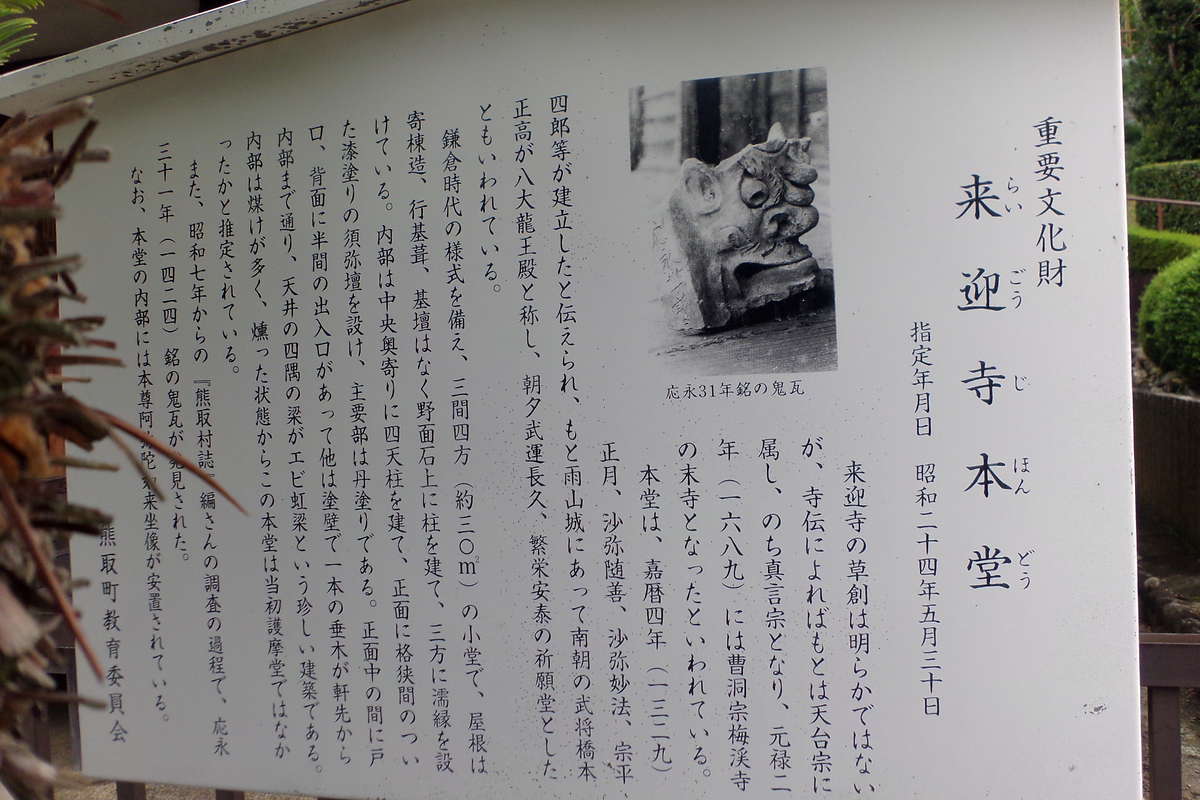 重要文化財
来迎寺本堂
らいごうじほんどう
指定年月日 昭和二十四年五月三十日
来迎寺の草創は明らかではない
が、寺伝によればもとは天台宗に
属し、のち真言宗となり、元禄二
年(一六八九)には曹洞宗梅渓寺
の末寺となったといわれている。
本堂は、嘉暦四年(一三二九)
正月、沙弥随善、沙弥妙法、宗平
四郎等が建立したと伝えられ、もと雨山城にあって南朝の武将橋本
正高が八大龍王殿と称し、朝夕武運長久、繁栄安泰の祈願堂とした
ともいわれている。
鎌倉時代の様式を備え、三間四方(約三〇㎡)の小堂で、屋根は
寄棟造、行基葺、基壇はなく野面石上に柱を建て、三方に濡縁を設
けている。内部は中央奥寄りに四天柱を建て、正面に格狭間のつい
た漆塗りの須弥壇を設け、主要部は丹塗りである。正面中の間に戸
口、背面に半間の出入口があって他は塗壁で一本の垂木が軒先から
内部まで通り、天井の四隅の梁がエビ虹梁という珍しい建築である。
内部は煤けが多く、燻った状態からこの本堂は当初護摩堂ではなか
ったかと推定されている。
また、昭和七年からの『熊取村誌』編さんの調査の過程で、応永
三十一年(一四二四)銘の鬼瓦が発見された。
なお、本堂の内部には本尊阿弥陀如来坐像が安置されている。
熊取町教育委員会
応永31年銘の鬼瓦